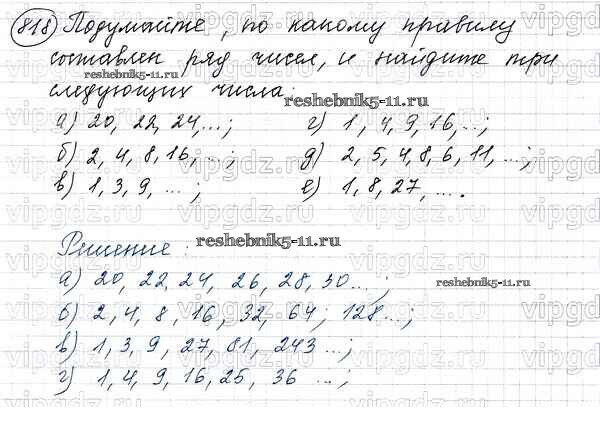 818 Подумайте, по какому правилу
составлен ряд чисел, и найдите три
reshebnik5-11.ru
следующих числа:
reshebnik5-11.ru
а) 20, 22, 24,...; г) 1, 4, 9, 16,...;
б) 2, 4, 8, 16, ...; д) 2, 5, 4, 8, 6, 11, ...;
в) 1, 3, 9, ... ; е) 1, 8, 27, ... .
Решение:
reshebnik5-11.ru
а) 20, 22, 24, 26, 28, 30 ...;
reshebnik5-11.ru
б) 2, 4, 8, 16, 32, 64; 128...;
в) 1, 3, 9, 27, 81, 243 ...;
г) 1, 4, 9, 16, 25, 36 ...;
vipgdz.ru